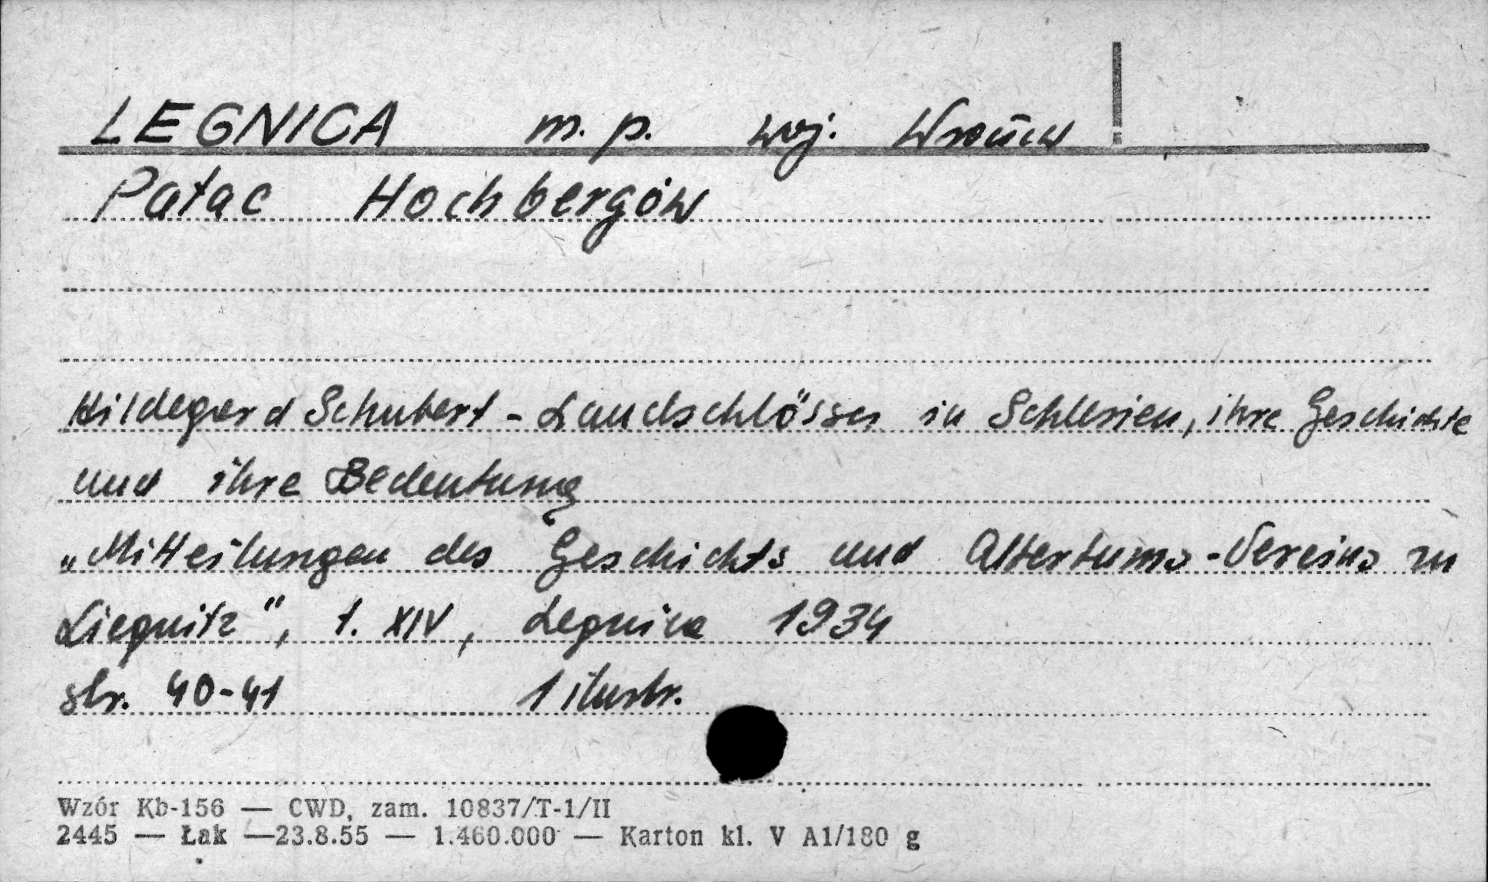 LEGNICA m. p. woj. Wrocław
Pałac Hochbergów
Hildegard Schubert - Landschlösser in Schlesien, ihre Geschichte
und ihre Bedeutung
„Mitteilungen des Geschichts und Altertums-Vereins zu
Liegnitz", t. XIV, Legnica 1934
str. 40-41 1 ilustr.
Wzór Kb-156 — CWD, zam. 10837/T-1/II
2445 — Łak —23.8.55 — 1.460.000 — Karton kl. V A1/180 g